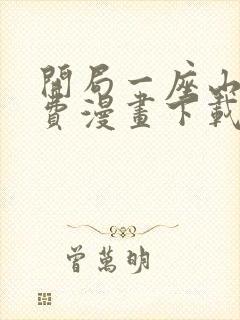 開局一座山
費漫畫下載
曾萬明